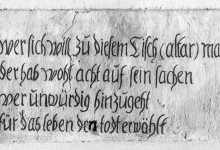 wer sich woll zu diesem Tisch (altar) ma
der hab wohl acht auf sein sachen
wer unwürdig hinzugeht
für das leben den todt erwöhlt